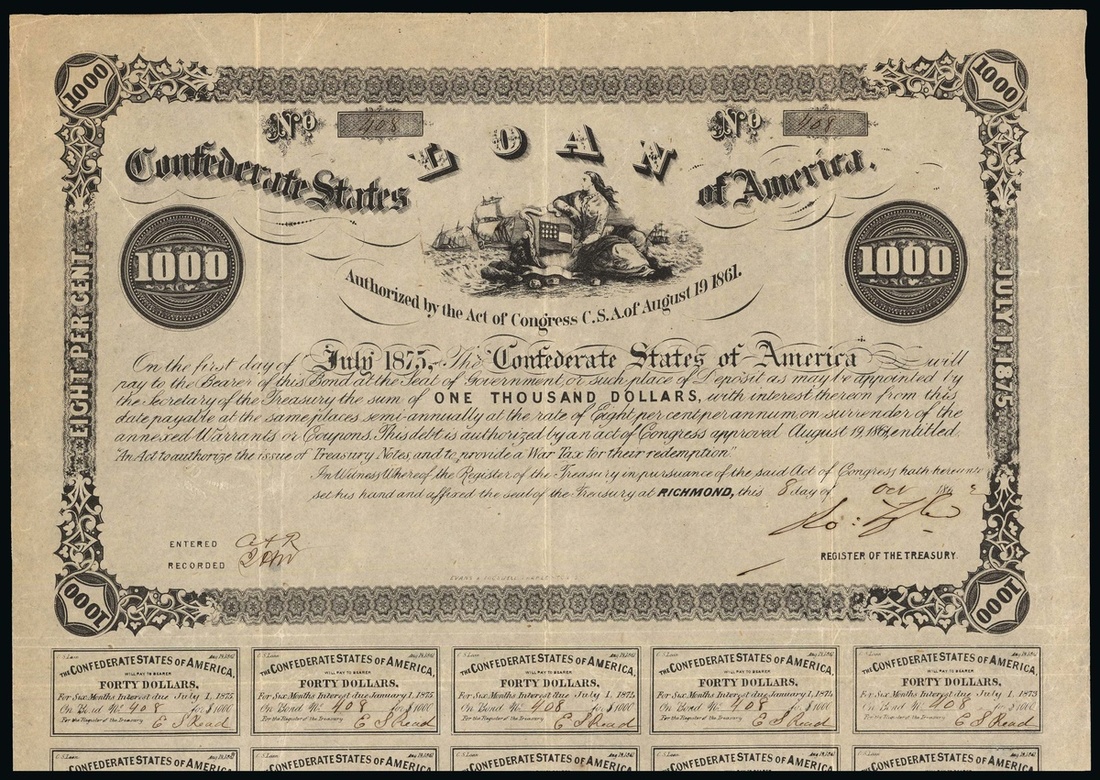 1000
1000
No 408
LOAN
No 408
Confederate States
of America.
1000
1000
Authorized by the Act of Congress C.S.A. of August 19 1861.
EIGHT PER CENT.
JULY 1. 1875.
On the first day of July 1875, The Confederate States of America will
pay to the Bearer of this Bond at the Seat of Government, or such place of Deposit as may be appointed by
the Secretary of the Treasury the sum of ONE THOUSAND DOLLARS, with interest thereon from this
date payable at the same places semi-annually at the rate of Eight per cent per annum on surrender of the
annexed Warrants or Coupons. This debt is authorized by an act of Congress approved August 19, 1861, entitled
"An Act to authorize the issue of Treasury Notes, and to provide a War Tax for their redemption"
In Witness Whereof, the Register of the Treasury in pursuance of the said Act of Congress hath hereunto
set his hand and affixed the seal of the Treasury at RICHMOND, this 8 day of Oct 186
ENTERED
RECORDED
REGISTER OF THE TREASURY.
1000
1000
C.S. Loan Aug 19, 1861
THE CONFEDERATE STATES OF AMERICA,
WILL PAY TO BEARER
FORTY DOLLARS,
For Six Months Interest due July 1, 1875,
On Bond No. 408 for $1000
For the Register of the Treasury E S Read
C.S. Loan Aug 19, 1861
THE CONFEDERATE STATES OF AMERICA,
WILL PAY TO BEARER
FORTY DOLLARS,
For Six Months Interest due January 1, 1875
On Bond No. 408 for $1000
For the Register of the Treasury E S Read
C.S. Loan Aug 19, 1861
THE CONFEDERATE STATES OF AMERICA,
WILL PAY TO BEARER
FORTY DOLLARS,
For Six Months Interest due July 1, 1874
On Bond No. 408 for $1000
For the Register of the Treasury E S Read
C.S. Loan Aug 19, 1861
THE CONFEDERATE STATES OF AMERICA,
WILL PAY TO BEARER
FORTY DOLLARS,
For Six Months Interest due January 1, 1874
On Bond No. 408 for $1000
For the Register of the Treasury E S Read
C.S. Loan Aug 19, 1861
THE CONFEDERATE STATES OF AMERICA,
WILL PAY TO BEARER
FORTY DOLLARS,
For Six Months Interest due July 1, 1873
On Bond No. 408 for $1000
For the Register of the Treasury E S Read
C.S. Loan Aug 19, 1861
THE CONFEDERATE STATES OF AMERICA,
C.S. Loan Aug 19, 1861
THE CONFEDERATE STATES OF AMERICA,
C.S. Loan Aug 19, 1861
THE CONFEDERATE STATES OF AMERICA,
C.S. Loan Aug 19, 1861
THE CONFEDERATE STATES OF AMERICA,
C.S. Loan Aug 19, 1861
THE CONFEDERATE STATES OF AMERICA,